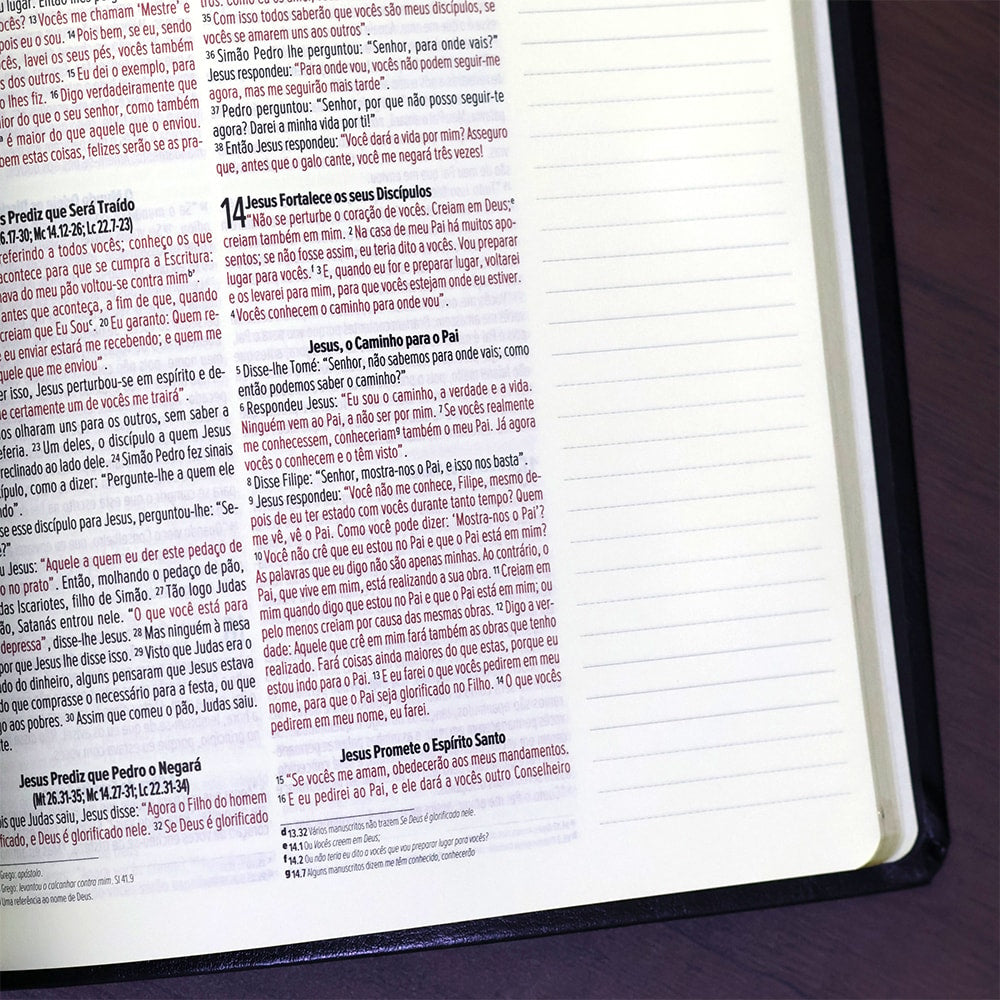 lugar. Então lhes
13 Vocês me chamam ‘Mestre’ e
pois eu o sou. 14 Pois bem, se eu, sendo
lavei os seus pés, vocês também
dos outros. 15 Eu dei o exemplo, para
lhes fiz. 16 Digo verdadeiramente que
maior do que o seu senhor, como também
é maior do que aquele que o enviou.
estas coisas, felizes serão se as pra-
Prediz que Será Traído
6.17-30; Mc 14.12-26; Lc 22.7-23)
referindo a todos vocês; conheço os que
acontece para que se cumpra a Escritura:
do meu pão voltou-se contra mimb’.
antes que aconteça, a fim de que, quando
creiam que Eu Souc. 20 Eu garanto: Quem re-
eu enviar estará me recebendo; e quem me
que me enviou”.
isso, Jesus perturbou-se em espírito e de-
certamente um de vocês me trairá”.
olharam uns para os outros, sem saber a
23 Um deles, o discípulo a quem Jesus
reclinado ao lado dele. 24 Simão Pedro fez sinais
como a dizer: “Pergunte-lhe a quem ele
esse discípulo para Jesus, perguntou-lhe: “Se-
Jesus: “Aquele a quem eu der este pedaço de
no prato”. Então, molhando o pedaço de pão,
Iscariotes, filho de Simão. 27 Tão logo Judas
Satanás entrou nele. “O que você está para
depressa”, disse-lhe Jesus. 28 Mas ninguém à mesa
por que Jesus lhe disse isso. 29 Visto que Judas era o
do dinheiro, alguns pensaram que Jesus estava
que comprasse o necessário para a festa, ou que
aos pobres. 30 Assim que comeu o pão, Judas saiu.
Jesus Prediz que Pedro o Negará
(Mt 26.31-35; Mc 14.27-31; Lc 22.31-34)
que Judas saiu, Jesus disse: “Agora o Filho do homem
e Deus é glorificado nele. 32 Se Deus é glorificado
Grego: apóstolo.
Grego: levantou o calcanhar contra mim. Sl 41.9
Uma referência ao nome de Deus.
35 Com isso todos saberão que vocês são meus discípulos, se
vocês se amarem uns aos outros”.
36 Simão Pedro lhe perguntou: “Senhor, para onde vais?”
Jesus respondeu: “Para onde vou, vocês não podem seguir-me
agora, mas me seguirão mais tarde”.
37 Pedro perguntou: “Senhor, por que não posso seguir-te
agora? Darei a minha vida por ti!”
38 Então Jesus respondeu: “Você dará a vida por mim? Asseguro
que, antes que o galo cante, você me negará três vezes!
14 Jesus Fortalece os seus Discípulos
“Não se perturbe o coração de vocês. Creiam em Deus;e
creiam também em mim. 2 Na casa de meu Pai há muitos apo-
sentos; se não fosse assim, eu teria dito a vocês. Vou preparar
lugar para vocês.f 3 E, quando eu for e preparar lugar, voltarei
e os levarei para mim, para que vocês estejam onde eu estiver.
4 Vocês conhecem o caminho para onde vou”.
Jesus, o Caminho para o Pai
5 Disse-lhe Tomé: “Senhor, não sabemos para onde vais; como
então podemos saber o caminho?”
6 Respondeu Jesus: “Eu sou o caminho, a verdade e a vida.
Ninguém vem ao Pai, a não ser por mim. 7 Se vocês realmente
me conhecessem, conheceriamg também o meu Pai. Já agora
vocês o conhecem e o têm visto”.
8 Disse Filipe: “Senhor, mostra-nos o Pai, e isso nos basta”.
9 Jesus respondeu: “Você não me conhece, Filipe, mesmo de-
pois de eu ter estado com vocês durante tanto tempo? Quem
me vê, vê o Pai. Como você pode dizer: ‘Mostra-nos o Pai’?
10 Você não crê que eu estou no Pai e que o Pai está em mim?
As palavras que eu digo não são apenas minhas. Ao contrário, o
Pai, que vive em mim, está realizando a sua obra. 11 Creiam em
mim quando digo que estou no Pai e que o Pai está em mim; ou
pelo menos creiam por causa das mesmas obras. 12 Digo a ver-
dade: Aquele que crê em mim fará também as obras que tenho
realizado. Fará coisas ainda maiores do que estas, porque eu
estou indo para o Pai. 13 E eu farei o que vocês pedirem em meu
nome, para que o Pai seja glorificado no Filho. 14 O que vocês
pedirem em meu nome, eu farei.
Jesus Promete o Espírito Santo
15 “Se vocês me amam, obedecerão aos meus mandamentos.
16 E eu pedirei ao Pai, e ele dará a vocês outro Conselheiro
d 13.32 Vários manuscritos não trazem Se Deus é glorificado nele.
e 14.1 Ou Vocês creem em Deus;
f 14.2 Ou não teria eu dito a vocês que vou preparar lugar para vocês?
g 14.7 Alguns manuscritos dizem me têm conhecido, conhecerão